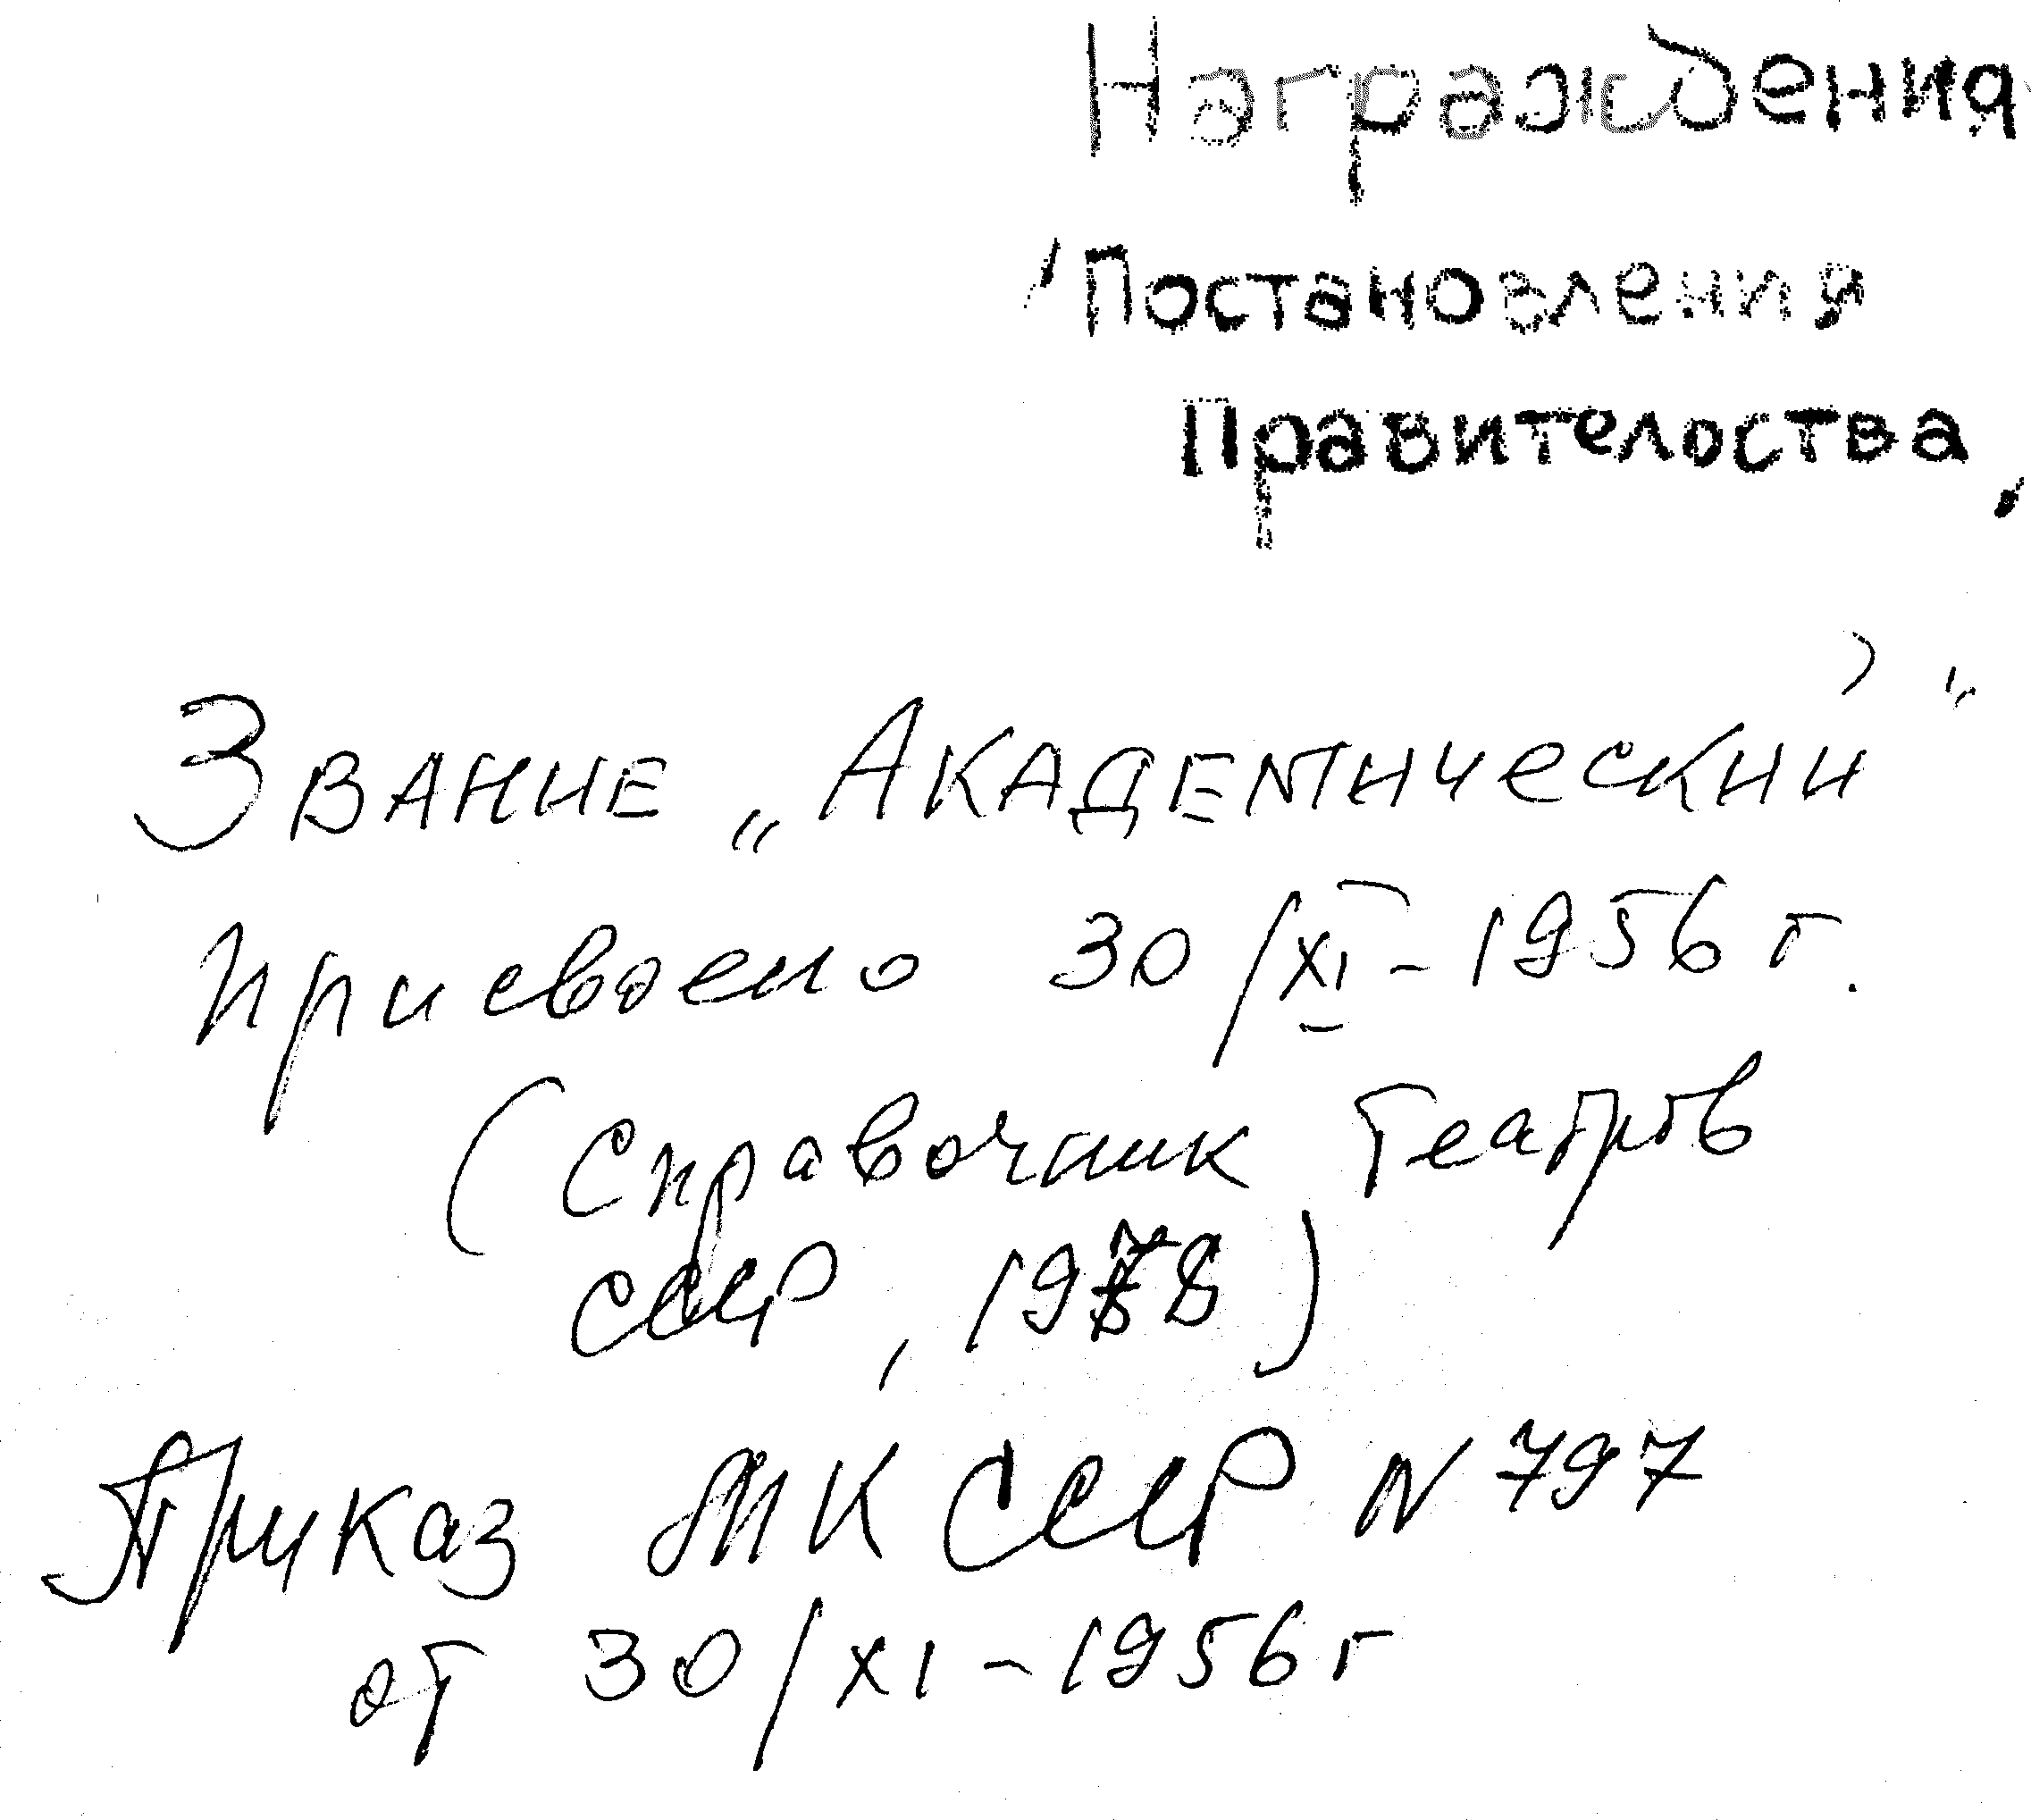 Награждения
Постановления
Правителоства
Звание „Академический"
присвоено 30/XI - 1956 г.
(Справочник театров
СССР, 1978)
Приказ МК СССР N 797
от 30/XI - 1956 г